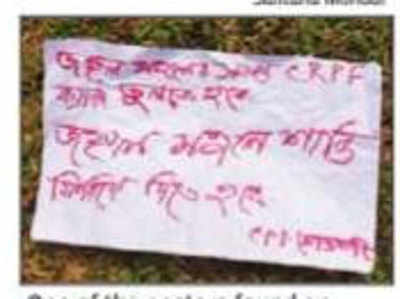 Santanu Mondal
জঙ্গল মহলের সমস্ত CRPF
ক্যাম্প তুলতে হবে
জঙ্গল মহলে শান্তি
ফিরিয়ে দিতে হবে
CPI মাওবাদী
One of the posters found on